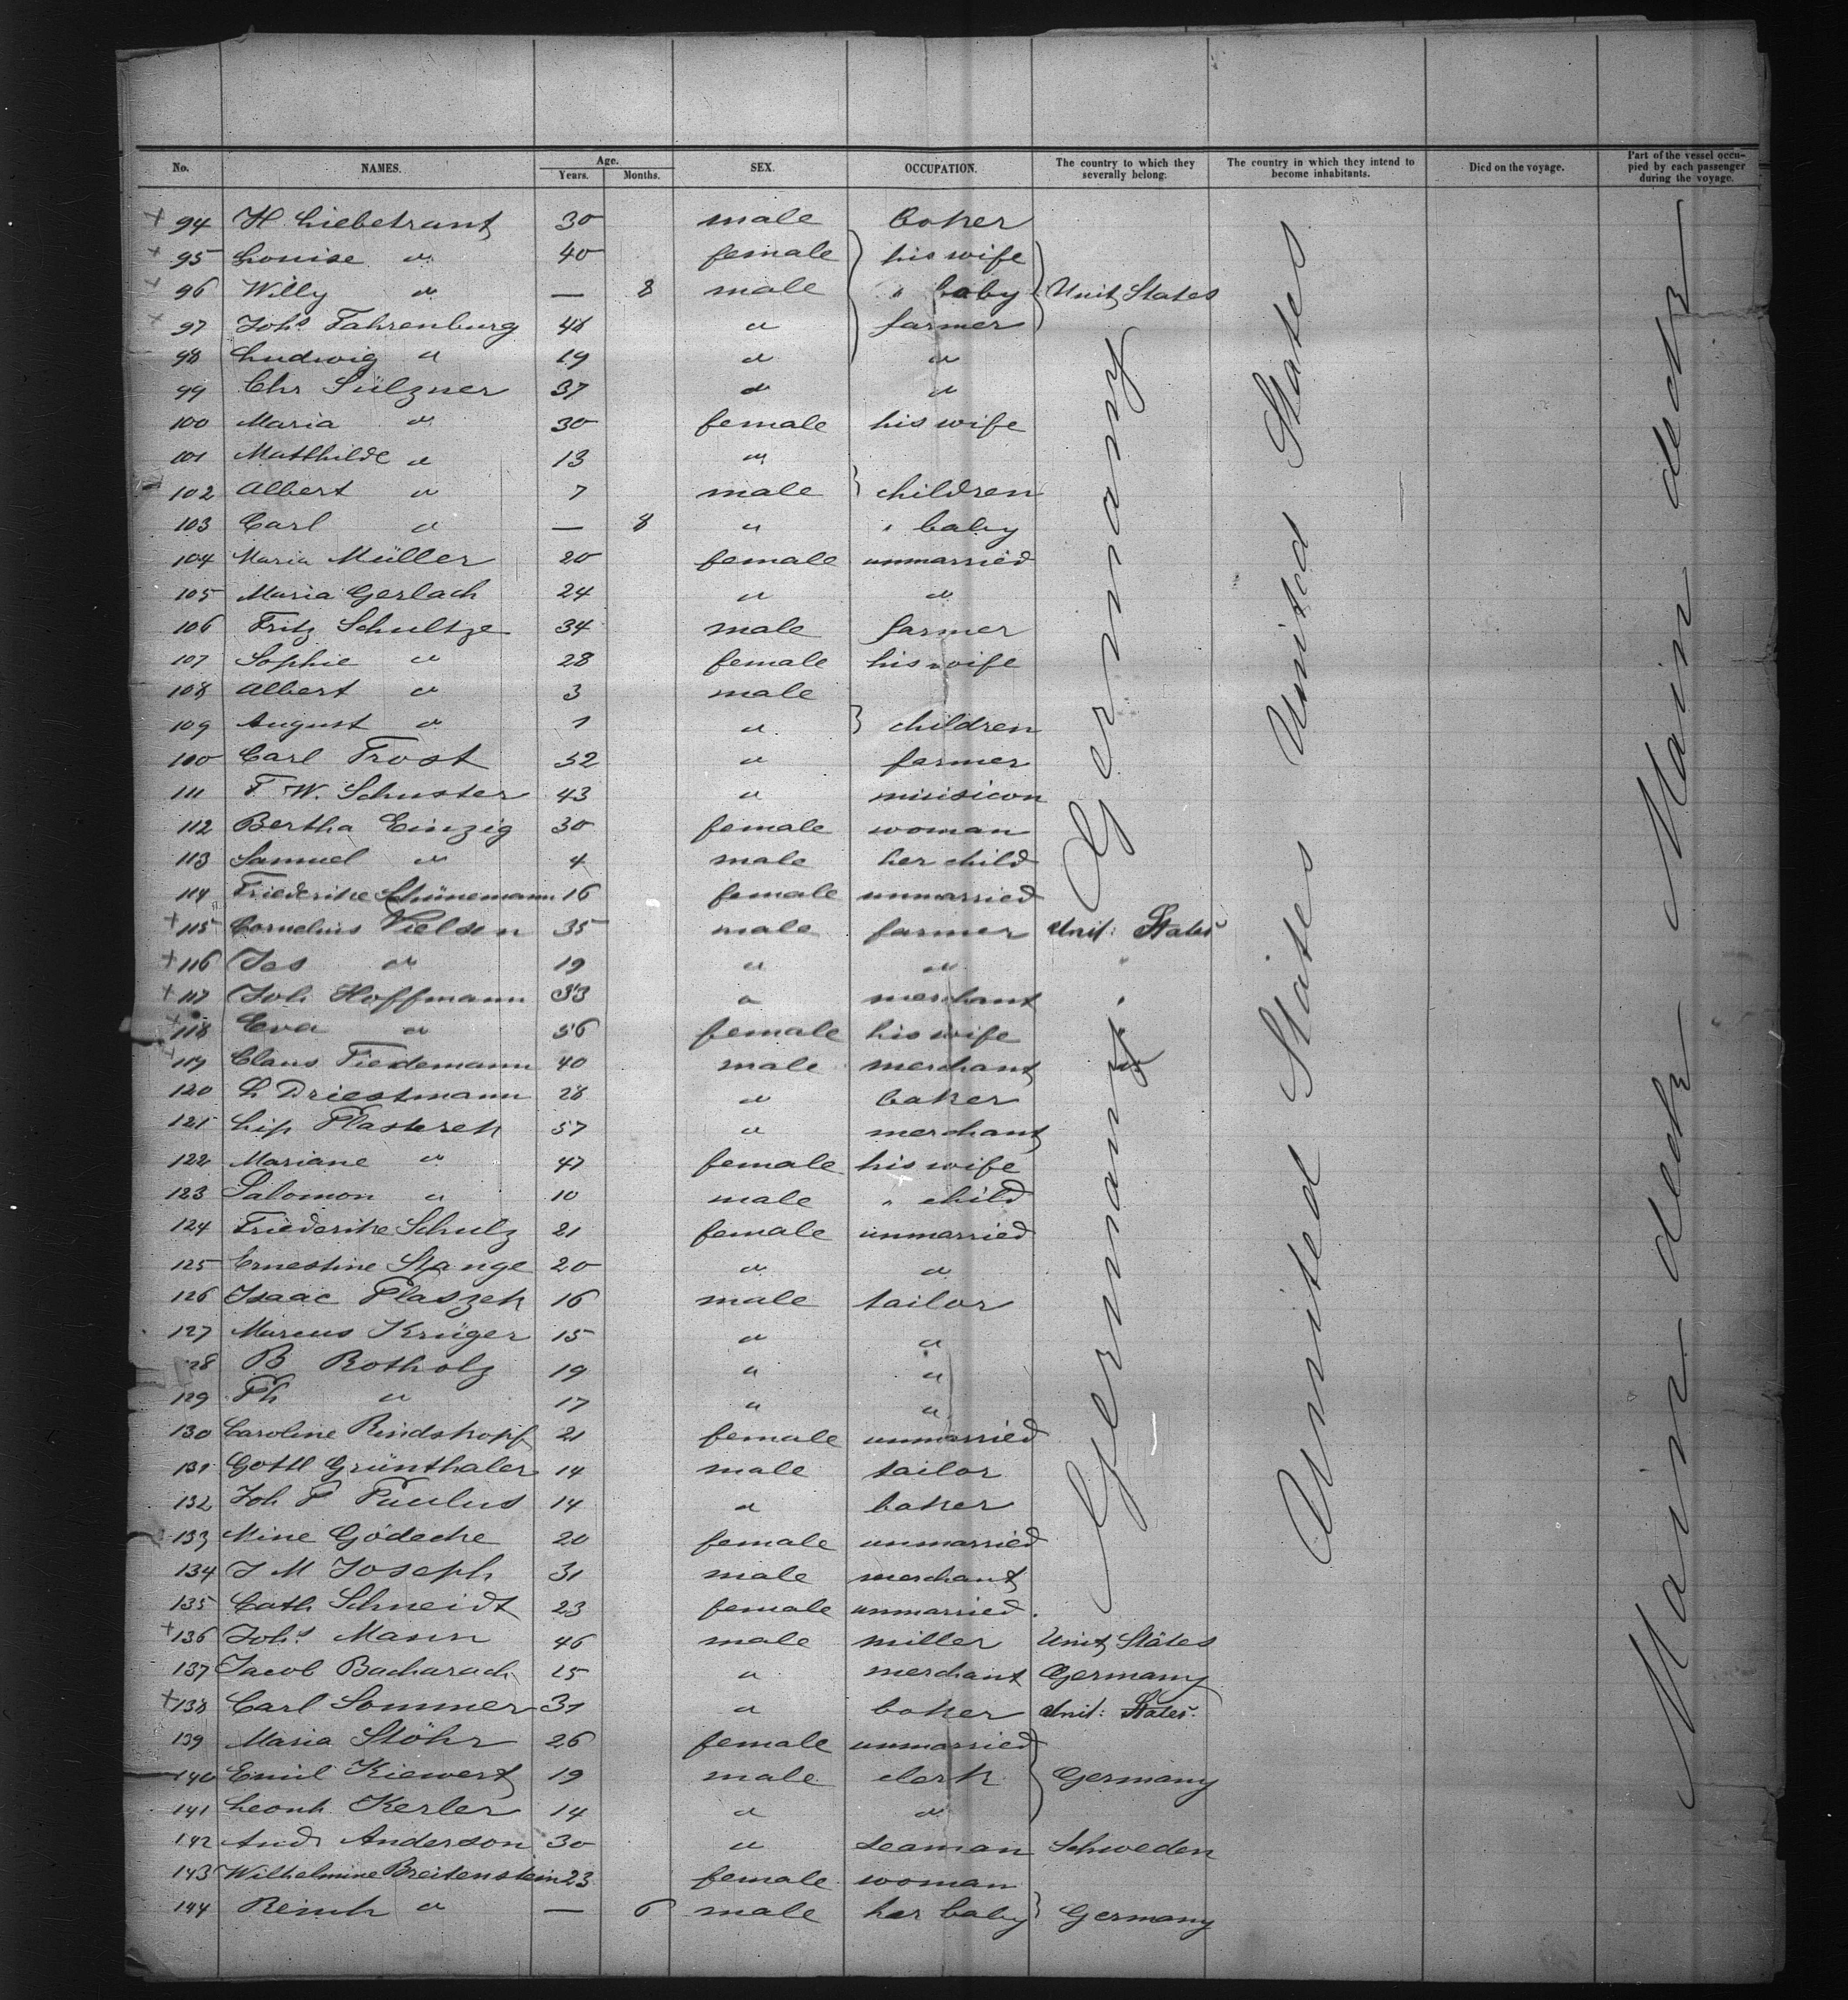 No. NAMES. Age. Years. Months. SEX. OCCUPATION. The country to which they severally belong. The country in which they intend to become inhabitants. Died on the voyage. Part of the vessel occupied by each passenger during the voyage.
+ 94 H Liebetrant 30 male baker
+ 95 Louise " 40 female his wife
+ 96 Willy " — 8 male " baby Unit States
+ 97 Johs Fahrenburg 48 " farmer
98 Ludwig " 19 " "
99 Chr Sülzner 37 " "
100 Maria " 30 female his wife
101 Matthilde " 13 "
102 Albert " 7 male children
103 Carl " — 8 " " baby
104 Maria Müller 20 female unmarried
105 Maria Gerlach 24 " "
106 Fritz Schultze 34 male farmer
107 Sophie " 28 female his wife
108 Albert " 3 male
109 August " 1 " children
110 Carl Frost 52 " farmer
111 F. W. Schuster 43 " musicion
112 Bertha Einzig 30 female woman
113 Samuel " 4 male her child
114 Friederike Schünemann 16 female unmarried
+ 115 Cornelius Nielsen 35 male farmer Unit: States
+ 116 Jes " 19 " " "
+ 117 Joh Hoffmann 33 " merchant "
+ 118 Eva " 56 female his wife "
119 Claus Tiedemann 40 male merchant "
120 L Driestmann 28 " baker
121 Lip Plasterek 57 " merchant
122 Mariane " 47 female his wife
123 Salomon " 10 male " child
124 Friederike Schulz 21 female unmarried
125 Ernestine Stange 20 " "
126 Isaac Plaszek 16 male tailor
127 Marcus Krüger 15 " "
128 B Rotholz 19 " "
129 Ph " 17 " "
130 Caroline Rindskopf 21 female unmarried
131 Gottl Grünthaler 14 male tailor
132 Joh P Paulus 14 " baker
133 Mine Gödecke 20 female unmarried
134 J M Joseph 31 male merchant
135 Cath Schneidt 23 female unmarried
+ 136 Johs Mann 46 male miller Unit States
137 Jacob Bacharach 25 " merchant Germany
+ 138 Carl Sommer 31 " baker Unit: States
139 Maria Stöhr 26 female unmarried
140 Emil Kiewert 19 male clerk Germany
141 Leonh Kerler 14 " "
142 Andr Anderson 30 " seaman Schweden
143 Wilhelmine Breitenstein 23 female woman
144 Reinh " — 6 male her baby Germany
Germany Germany
United States United States
Main deck Main deck